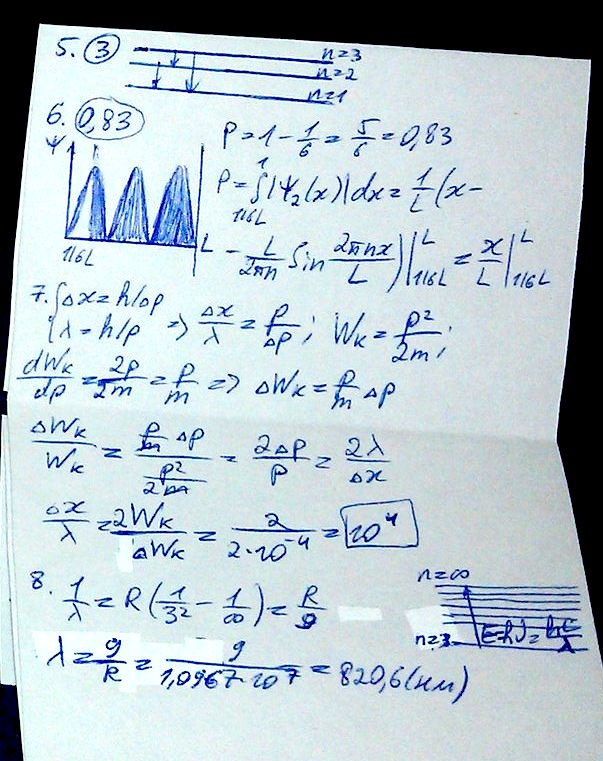 5. 3 n=3
n=2
n=1
6. 0,83 P=1-1/6=5/6=0,83
Ψ P=∫|Ψ₂(x)|dx=1/L(x-
1 1/6L
-L/2πn Sin 2πnx/L)|L 1/6L = x/L|L 1/6L
1/6L L
7. {Δx=h/Δp
{λ=h/p => Δx/λ=p/Δp; Wк=p²/2m;
dWк/dp=2p/2m=p/m => ΔWк=p/m Δp
ΔWк/Wк = p/m Δp / p²/2m = 2Δp/p = 2λ/Δx
Δx/λ=2Wк/ΔWк=2/2·10⁻⁴=10⁴
n=∞
8. 1/λ=R(1/3²-1/∞)=R/9
n=3 E=hν=hc/λ
λ=9/R=9/1,0967·10⁷=820,6(нм)